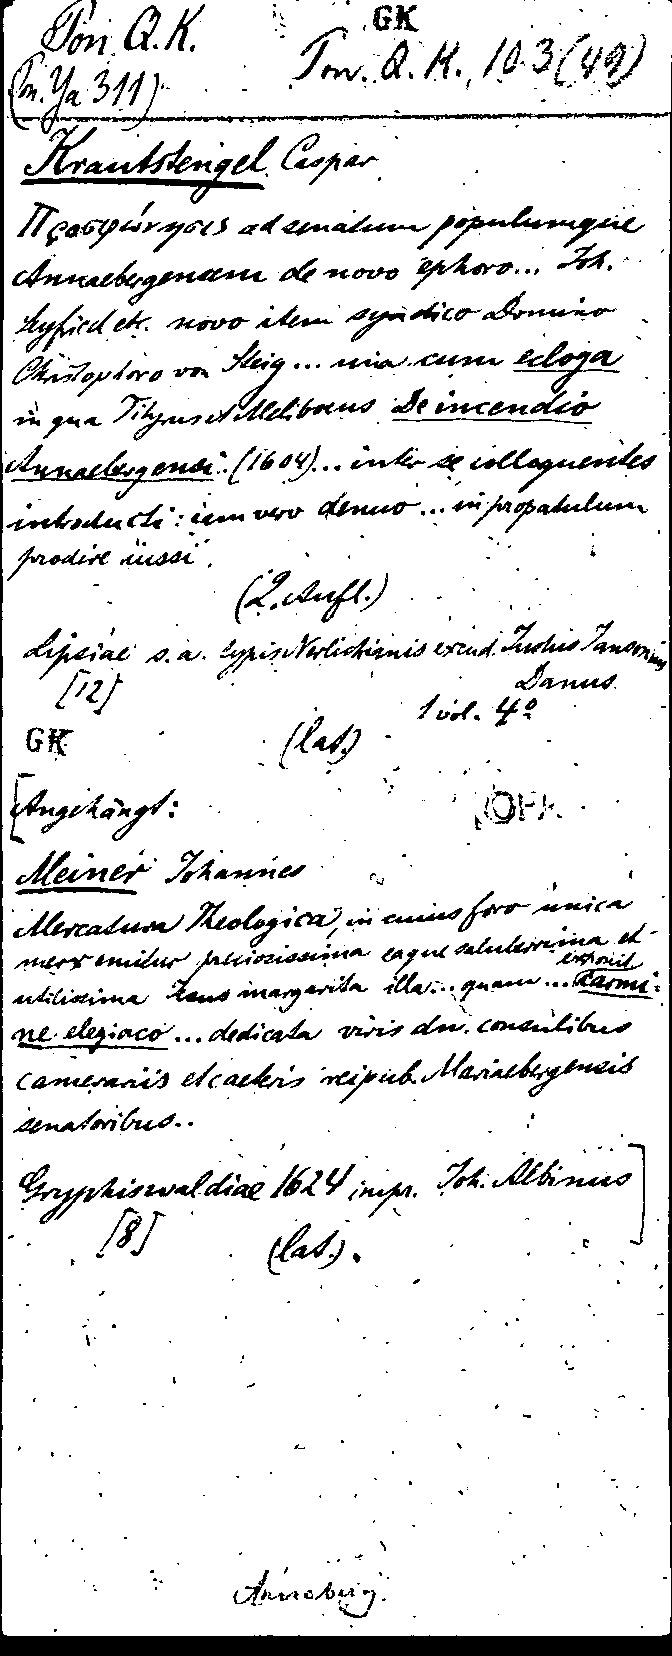 Pon. Q. K.
GK
Pon. Q. K., 103(49)
(Pon. Ya 311)
Krautstengel, Caspar
Προσφώνησις ad senatum populumque
Annaebergensem de novo ephoro... Joh.
Seyfried etc. novo item syndico Domino
Christophoro von Steig... una cum ecloga
in qua Tityrus et Meliboeus De incendio
Annaebergensi (1604)... inter se colloquentes
introducti: iam vero denuo... in propatulum
prodire iussi.
(2. Aufl.)
Lipsiae s. a. typis Nerlichianis excud. Justus Jansonius
Danus
[12]
1 vol. 4°
GK
(lat.)
[Angehängt:
Meiner Johannes
Mercatura Theologica, in cuius foro unica
merx emitur preciosissima eaque saluberrima et
utilissima Jesus margarita illa... quam... exposuit Carmi-
ne elegiaco... dedicata viris dn. consulibus
camerariis et caeteris reipub. Mariaebergensis
senatoribus..
Gryphiswaldiae 1624 impr. Joh. Albinus]
[8]
(lat.).
Annaberg.